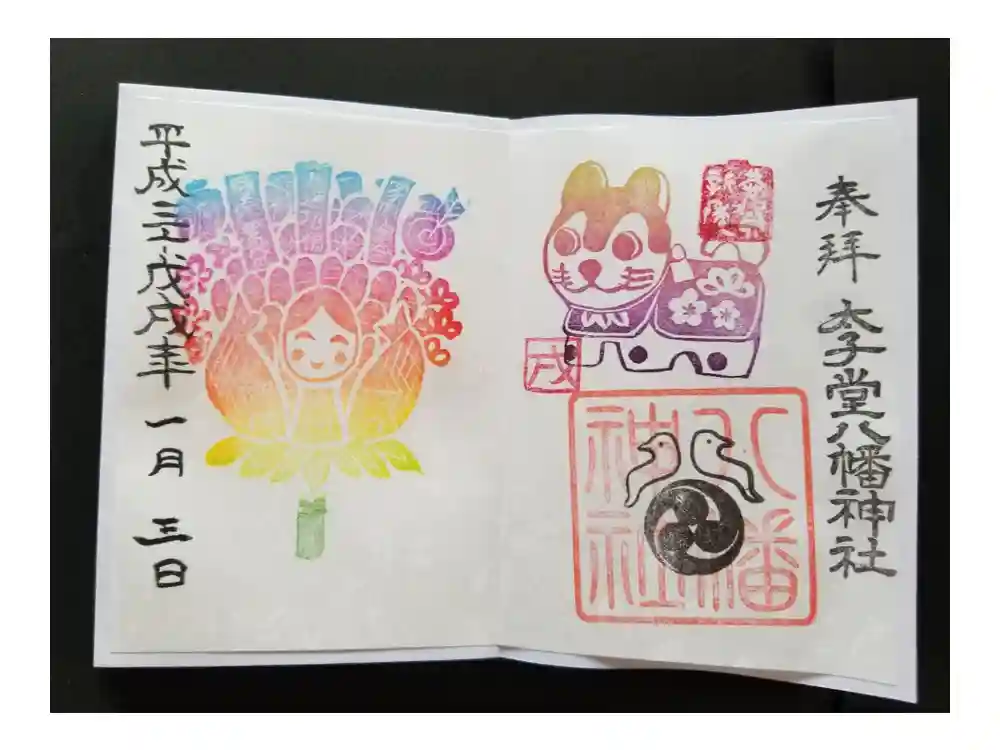 奉拜 太子堂八幡神社
戌
八幡
神社
平成三十戊戌年 一月 三日